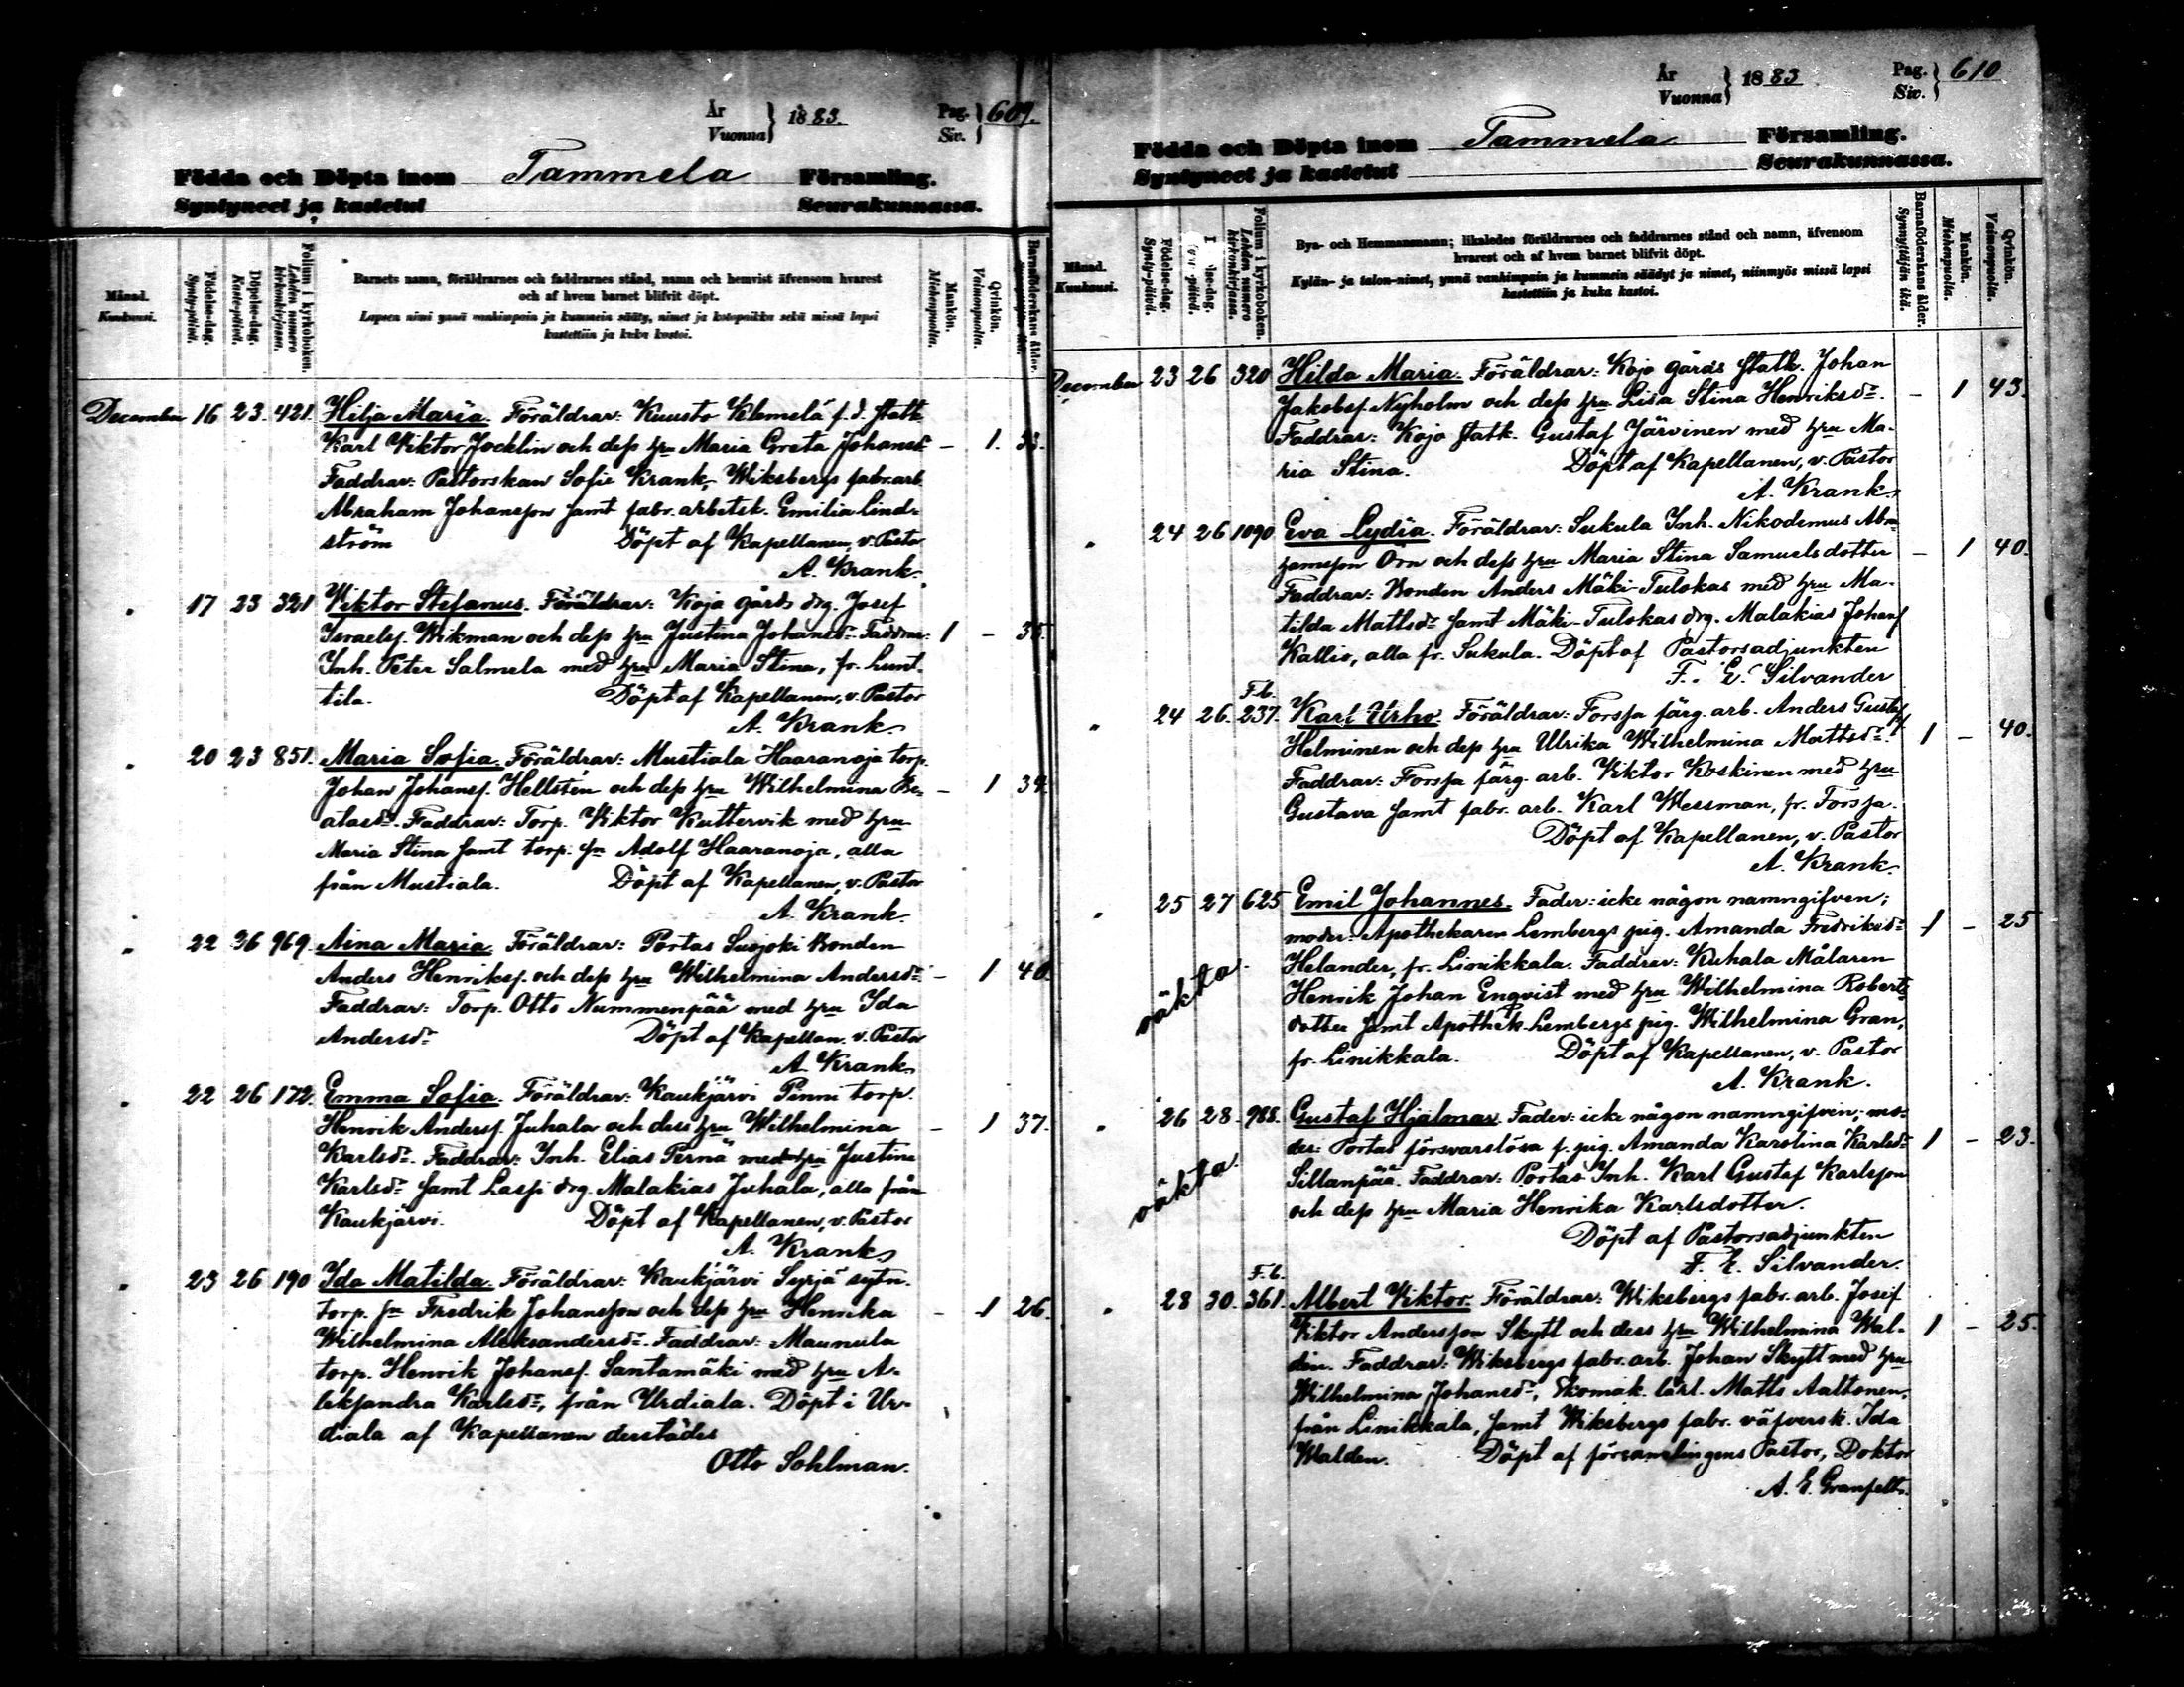 År
Vuonna } 1883.
Pag.
Siv. } 609.
Födda och Döpta inom Tammela Församling.
Syntyneet ja kastetut Seurakunnassa.
Månad.
Kuukausi.
Födelse-dag.
Synty-päivä.
Döpelse-dag.
Kaste-päivä.
Folium i kyrkoboken.
Lehden numero
kirkonkirjassa.
Barnets namn, föräldrarnes och faddrarnes stånd, namn och hemvist äfvensom hvarest
och af hvem barnet blifvit döpt.
Lapsen nimi ynnä vanhimpain ja kummein sääty, nimet ja kotopaikka sekä missä lapsi
kastettiin ja kuka kastoi.
Mankön.
Miehenpuolta.
Qvinkön.
Vaimonpuolta.
Barnaföderskans ålder.
December 16 23. 421. Hilja Maria. Föräldrar: Kuusto Klemelä f.d. statk.
Karl Viktor Jocklin och dess hru Maria Greta Johansdr – 1. 33.
Faddrar: Pastorskan Sofie Krank, Wiksbergs fabr. arb.
Abraham Johansson samt fabr. arbetsk. Emilia Lind-
ström Döpt af Kapellanen, v. Pastor
A. Krank.
" 17 23 321 Viktor Stefanus. Föräldrar: Koja gårds drg. Josef
Israelss. Wikman och dess hru Justina Johansdr. Faddrar: 1 –
Inh. Peter Salmela med hru Maria Stina, fr. Lunt-
tila. Döpt af Kapellanen, v. Pastor
A. Krank.
" 20 23 851. Maria Sofia. Föräldrar: Mustiala Haaranoja torp.
Johan Johanss. Hellsten och dess hru Wilhelmina Be- – 1 34.
atasdr. Faddrar: Torp. Viktor Kuttervik med hru
Maria Stina samt torp. sn Adolf Haaranoja, alla
från Mustiala. Döpt af Kapellanen, v. Pastor
A. Krank.
" 22 36 969. Aina Maria. Föräldrar: Portas Suojoki Bonden
Anders Henrikss. och dess hru Wilhelmina Andersdr – 1 40.
Faddrar: Torp. Otto Nummenpää med hru Ida
Andersdr Döpt af Kapellan. v. Pastor
A. Krank.
" 22 26 172. Emma Sofia. Föräldrar: Kaukjärvi Pinni torp.
Henrik Anderss. Juhala och dess hru Wilhelmina – 1 37.
Karlsdr. Faddrar: Inh. Elias Pernä med hru Justina
Karlsdr samt Lassi drg. Malakias Juhala, alla från
Kaukjärvi. Döpt af Kapellanen, v. Pastor
A. Krank.
" 23 26 190 Ida Matilda. Föräldrar: Kaukjärvi Syrjä sytn.
torp. sn Fredrik Johansson och dess hru Henrika – 1 26.
Wilhelmina Aleksandersdr. Faddrar: Maunula
torp. Henrik Johanss. Santamäki med hru A-
leksandra Karlsdr, från Urdiala. Döpt i Ur-
diala af Kapellanen derstädes
Otto Sohlman.
År
Vuonna } 1883
Pag.
Siv. } 610
Födda och Döpta inom Tammela Församling.
Syntyneet ja kastetut Seurakunnassa.
Månad.
Kuukausi.
Födelse-dag.
Synty-päivä.
Folium i kyrkoboken.
Lehden numero
kirkonkirjassa.
Bya- och Hemmansnamn; likaledes föräldrarnes och faddrarnes stånd och namn, äfvensom
hvarest och af hvem barnet blifvit döpt.
Kylän- ja talon-nimet, ynnä vanhimpain ja kummein säädyt ja nimet, niinmyös missä lapsi
kastettiin ja kuka kastoi.
Barnaföderskans ålder.
Synnyttäjän ikä.
Mankön.
Miehenpuolta.
Qvinkön.
Vaimonpuolta.
December 23 26 320 Hilda Maria. Föräldrar: Kojo gårds statk. Johan
Jakobss. Nyholm och dess hru Lisa Stina Henriksdr. – 1 43.
Faddrar: Kojo statk. Gustaf Järvinen med hru Ma-
ria Stina. Döpt af Kapellanen, v. Pastor
A. Krank.
" 24 26 1090 Eva Lydia. Föräldrar: Sukula Inh. Nikodemus Abra-
hamsson Örn och dess hru Maria Stina Samuelsdotter – 1 40.
Faddrar: Bonden Anders Mäki-Tulokas med hru Ma-
tilda Mattsdr samt Mäki-Tulokas drg. Malakias Johans
Kallio, alla fr. Sukula. Döpt af Pastorsadjunkten
F. E. Silvander
F.b.
" 24 26. 237. Karl Urho. Föräldrar: Forssa färg. arb. Anders Gustafs.
Helminen och dess hru Ulrika Wilhelmina Mattsdr. 1 – 40.
Faddrar: Forssa färg. arb. Viktor Koskinen med hru
Gustava samt fabr. arb. Karl Wessman, fr. Forssa.
Döpt af Kapellanen, v. Pastor
A. Krank.
" 25 27 625 Emil Johannes. Fader: icke någon namngifven;
moder: Apothekaren Lembergs pig. Amanda Fredriksdr 1 – 25
Helander, fr. Linikkala. Faddrar: Kuhala Målaren
oäkta.
Henrik Johan Enqvist med hru Wilhelmina Roberts-
dotter samt Apothek. Lembergs pig. Wilhelmina Gran,
fr. Linikkala. Döpt af Kapellanen, v. Pastor
A. Krank.
" 26 28. 988. Gustaf Hjalmar. Fader: icke någon namngifven; mo-
der: Portas försvarslösa f. pig. Amanda Karolina Karlsdr 1 – 23.
oäkta.
Sillanpää. Faddrar: Portas Inh. Karl Gustaf Karlsson
och dess hru Maria Henrika Karlsdotter.
Döpt af Pastorsadjunkten
F. E. Silvander.
F.b.
" 28 30. 361. Albert Viktor. Föräldrar: Wiksbergs fabr. arb. Josef
Viktor Andersson Skytt och dess hru Wilhelmina Wal- 1 – 25.
din. Faddrar: Wiksbergs fabr. arb. Johan Skytt med hru
Wilhelmina Johansdr, Skomak. lärl. Matts Aaltonen,
från Linikkala, samt Wiksbergs fabr. väfversk. Ida
Walden. Döpt af församlingens Pastor, Doktor
A. E. Granfelt.